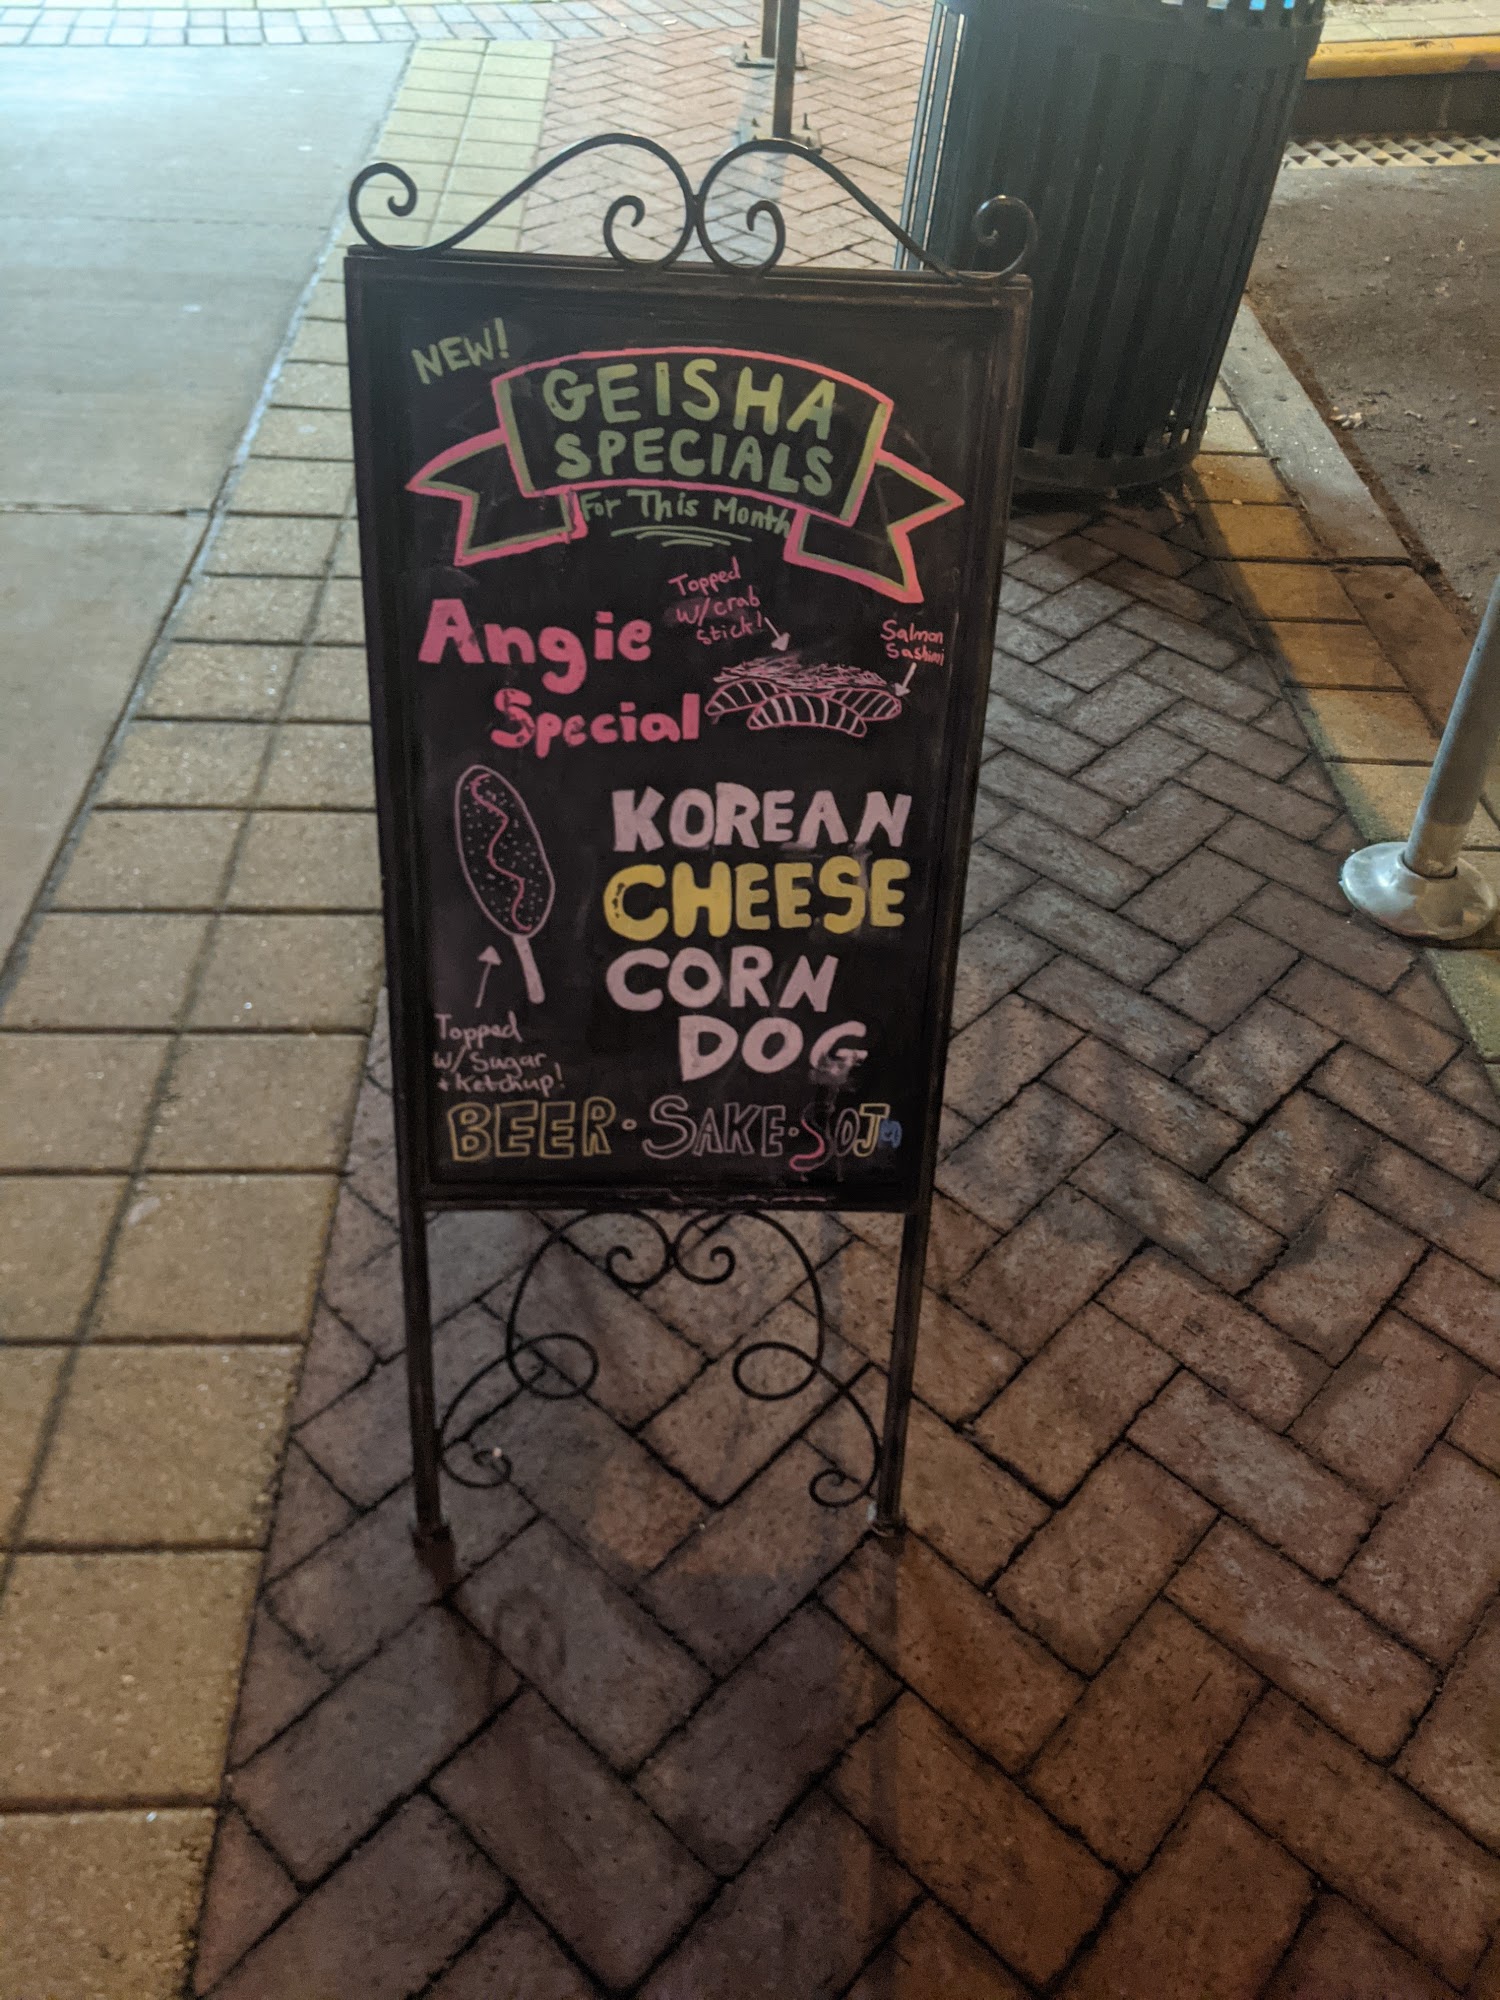 NEW!
GEISHA
SPECIALS
For This Month
Topped
w/crab
stick!
Angie
Special
Salmon
Sashimi
KOREAN
CHEESE
CORN
DOG
Topped
w/Sugar
+ketchup!
BEER·SAKE·SOJu